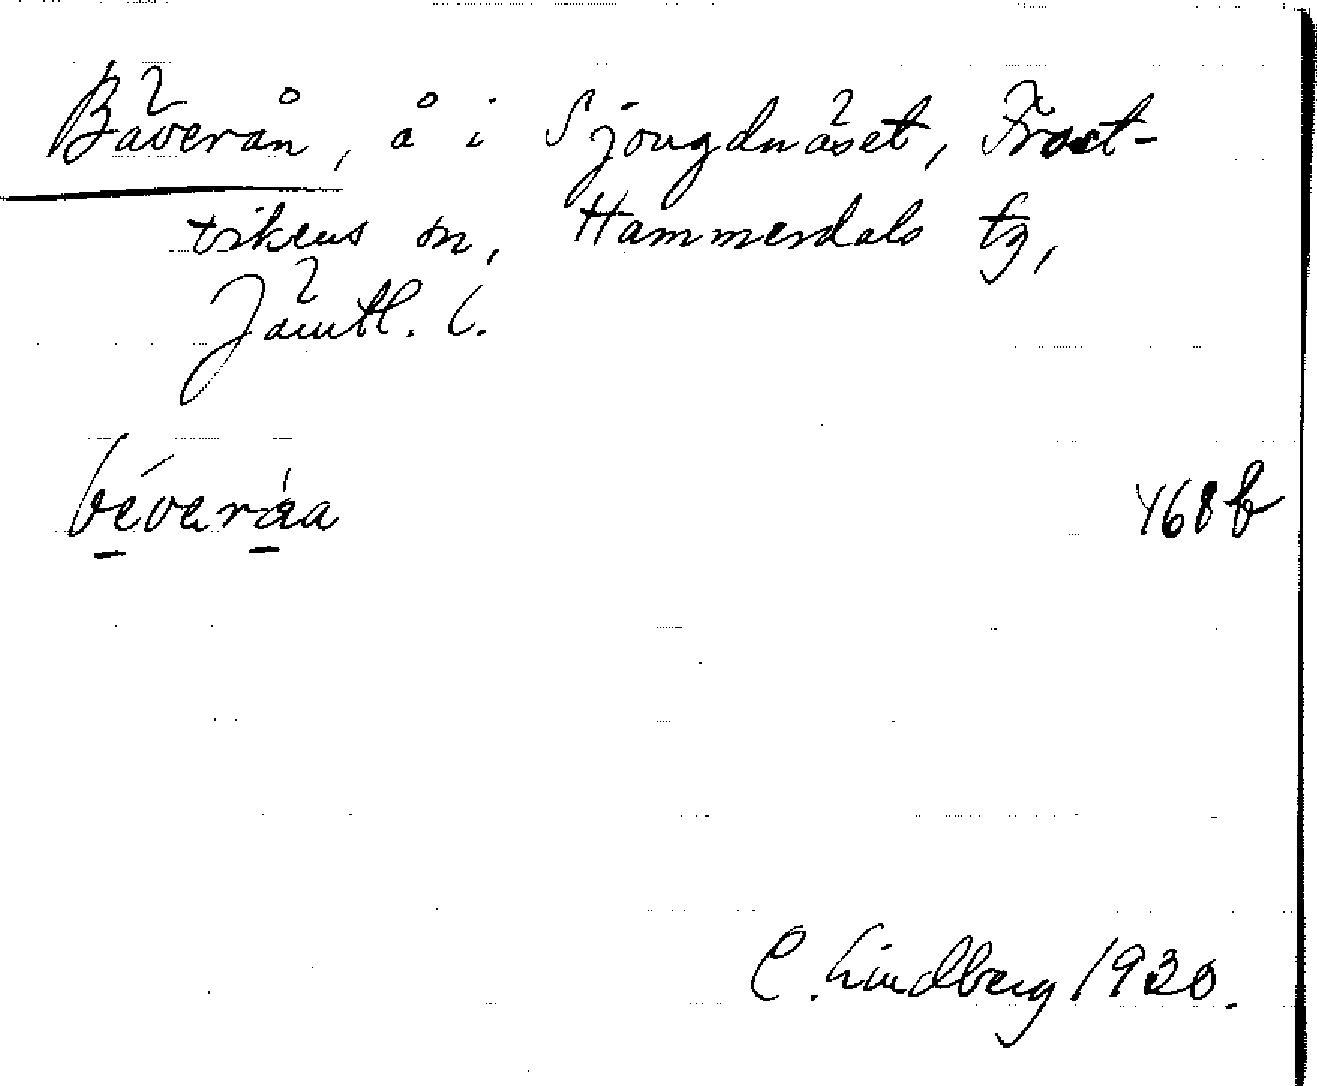 Bäverån, å i Sjougdnäset, Frost-
vikens sn, Hammerdals tg,
Jämtl. l.
béveráa 468 b
C. Lindberg 1930.